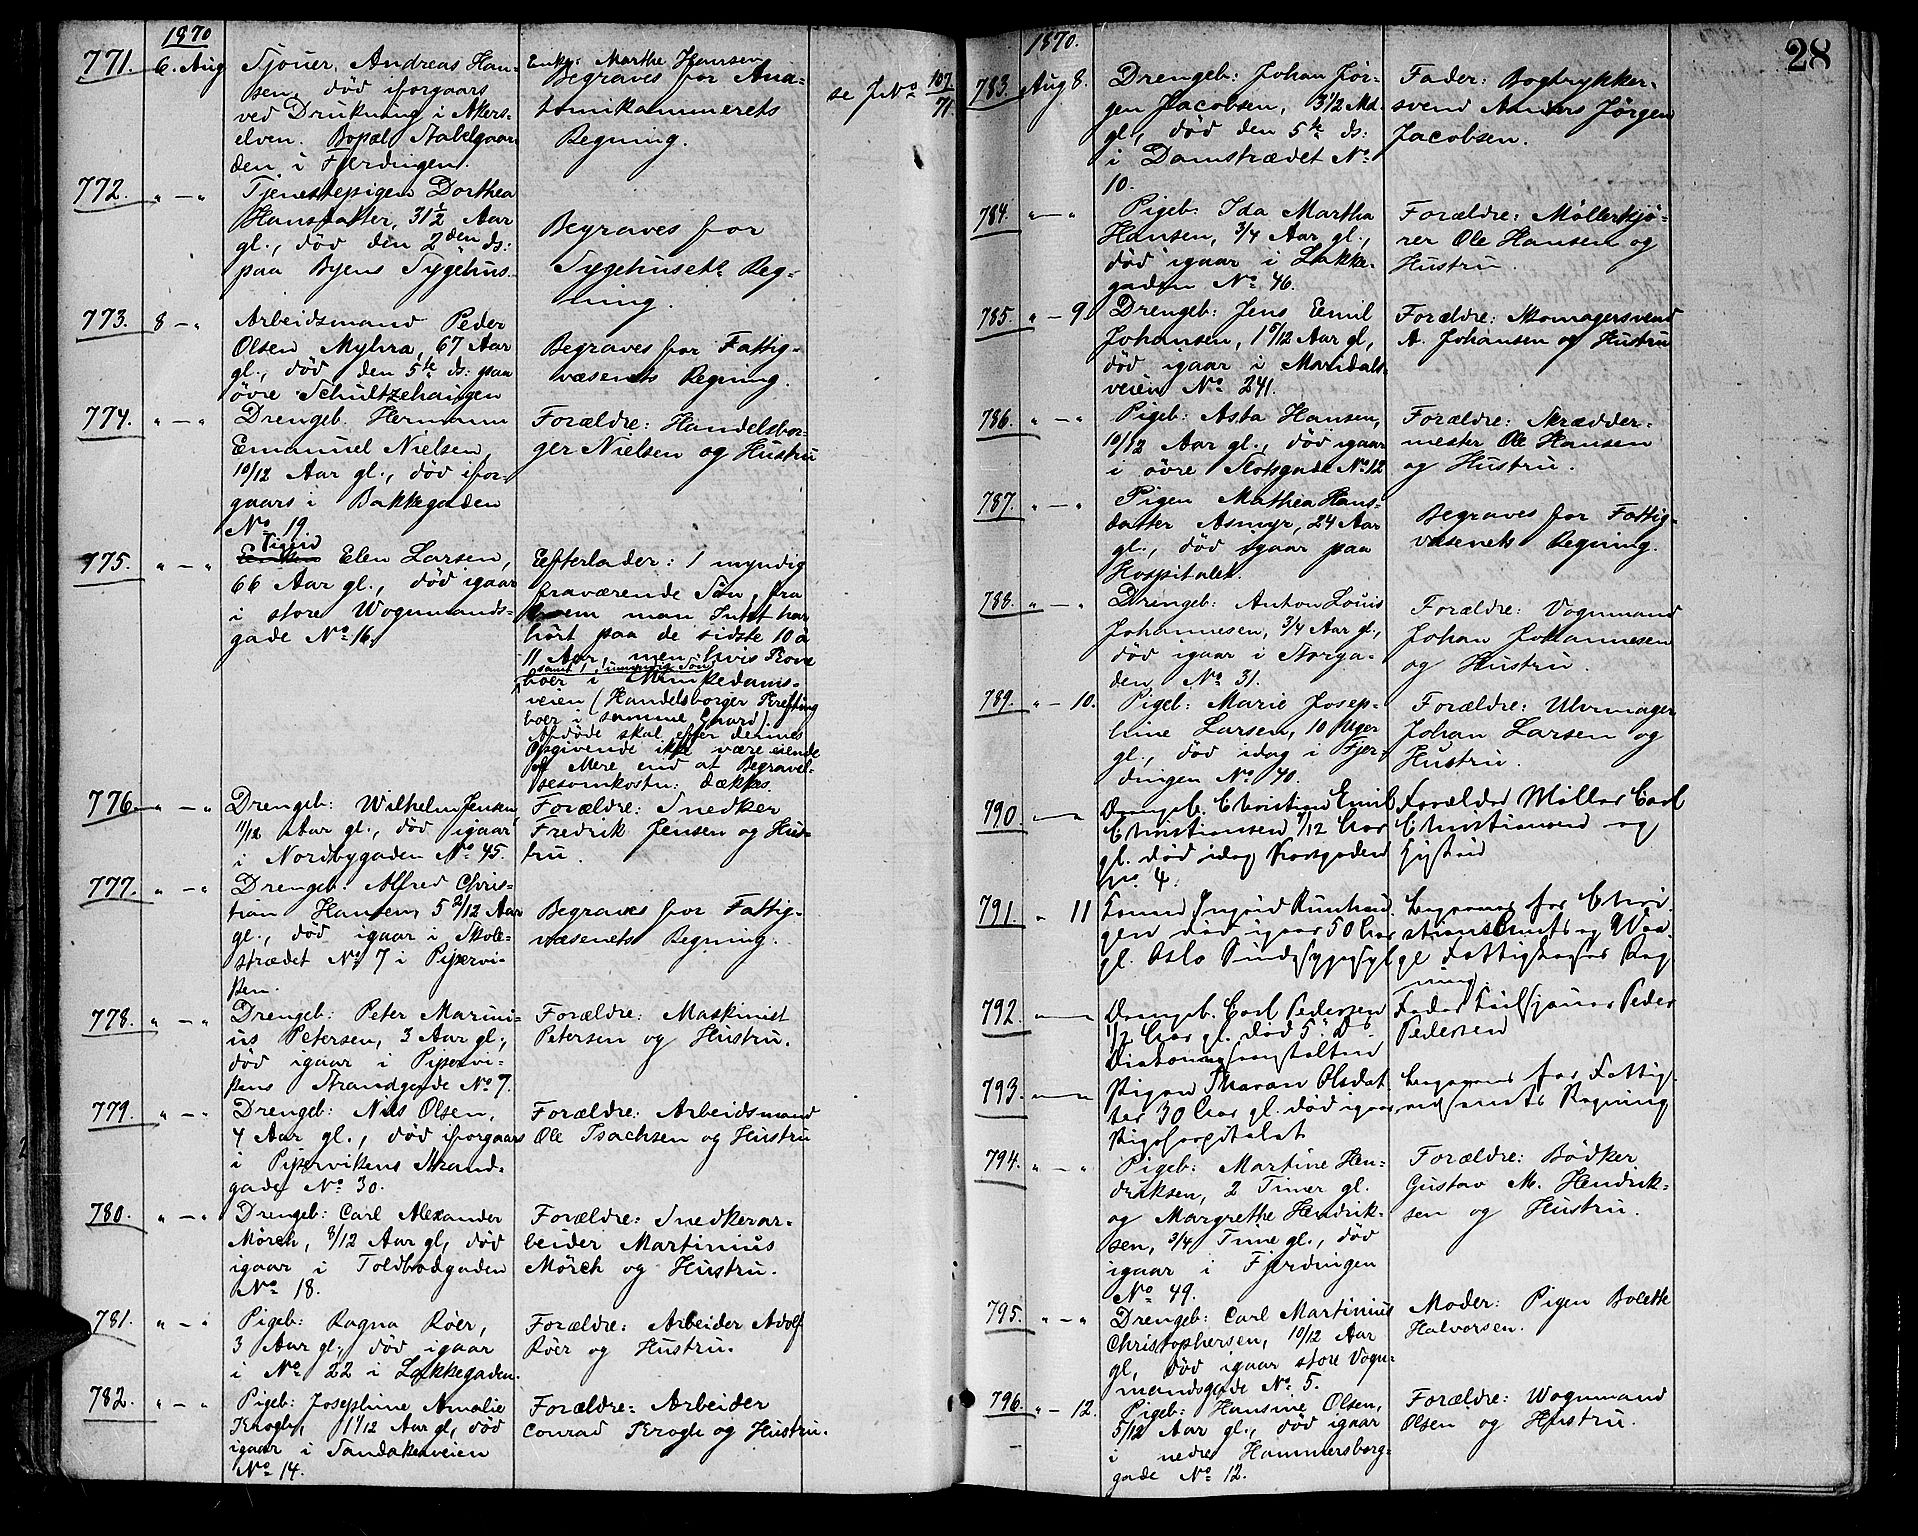 1870
771. 6. Aug Sjouer Andreas Han-
sen, død iforgaars
ved Drukning i Akers-
elven. Bopæl Aabelgaar-
den i Fjerdingen.
Enke: Marthe Hansen
Begraves for Ana-
tomikammerets
Regning.
se JNo 107/71.
772. " — " Tjenestepigen Dorthea
Hansdatter, 31½ Aar
gl., død den 2den ds:
paa Byens Sygehus.
Begraves for
Sygehusets Reg-
ning.
773. 8 — " Arbeidsmand Peder
Olsen Myhra, 67 Aar
gl., død den 5te ds: paa
øvre Schultzehaugen
Begraves for Fattig-
væsenets Regning.
774. " — " Drengeb. Hermann
Emanuel Nielsen,
10/12 Aar gl., død ifor-
gaars i Bakkegaden
No 19.
Forældre: Handelsbor-
ger Nielsen og Hustru
775. " — " Elen Larsen,
66 Aar gl., død igaar
i store Wognmands-
gade No 16.
Efterlader: 1 myndig
fraværende Søn, fra
hvem man Intet har
hørt paa de sidste 10 à
11 Aar, men hvis Kone
samt 1 umyndig Søn
boer i Munkedams-
veien (Handelsborger
boer i samme Gaard).
Afdøde skal efter dennes
Opgivende ikke være eiende
af Mere end at Begravel-
sesomkostn: dækkes.
776. " — " Drengeb: Wilhelm Jensen
11/12 Aar gl., død igaar
i Nordbygaden No 45.
Forældre: Snedker
Fredrik Jensen og Hus-
tru.
777. " — " Drengeb: Alfred Chris-
tian Hansen, 5 2/12 Aar
gl., død igaar i Skole-
strædet No 7 i Pipervi-
ken.
Begraves for Fattig-
væsenets Regning.
778. " — " Drengeb: Peter Marini-
us Petersen, 3 Aar gl.,
død igaar i Pipervi-
kens Strandgade No 7.
Forældre: Maskinist
Petersen og Hustru.
779. " — " Drengeb: Nils Olsen,
4 Aar gl., død iforgaars
i Pipervikens Strand-
gade No 30.
Forældre: Arbeidsmand
Ole Isachsen og Hustru
780. " — " Drengeb: Carl Alexander
Mörch, 8/12 Aar gl, død
igaar i Toldbodgaden
No 18.
Forældre: Snedkerar-
beider Martinius
Mörch og Hustru.
781. " — " Pigeb: Ragna Röer,
3 Aar gl., død igaar
i No 22 i Lakkegaden.
Forældre: Arbeider Adolf
Röer og Hustru.
782. " — " Pigeb: Josephine Amalie
Krogh, 1 1/12 Aar gl, død
igaar i Sandakerveien
No 14.
Forældre: Arbeider
Conrad Krogh og Hustru.
28
1870.
783. Aug 8. Drengeb: Johan Jør-
gen Jacobsen, 3½ Md.
gl., død den 5te ds:
i Damstrædet No
10.
Fader: Bogtrykker-
svend Anders Jørgen
Jacobsen.
784. " — " Pigeb: Ida Martha
Hansen, 3/4 Aar gl.,
død igaar i Lakke-
gaden No 46.
Forældre: Møllerkjø-
rer Ole Hansen og
Hustru.
785. " — 9. Drengeb: Jens Emil
Johansen, 1 5/12 Aar gl,
død igaar i Maridals-
veien No 241.
Forældre: Skomagersvend
A. Johansen og Hustru
786. " — " Pigeb: Asta Hansen,
10/12 Aar gl., død igaar
i øvre Slotsgade No 12
Forældre: Skrædder-
mester Ole Hansen
og Hustru.
787. " — " Pigen Mathea Hans-
datter Asmyr, 24 Aar
gl., død igaar paa
Hospitalet.
Begraves for Fattig-
væsenets Regning.
788. " — " Drengeb: Anton Louis
Johannesen, 3/4 Aar gl.,
død igaar i Storga-
den No 31.
Forældre: Vognmand
Johan Johannesen
og Hustru.
789. " — 10. Pigeb: Marie Josep-
hine Larsen, 10 Uger
gl., død idag i Fjer-
dingen No 40.
Forældre: Uhrmager
Johan Larsen og
Hustru.
790. — Drengeb. Christian Emil
Christiansen 7/12 Aar
gl. død idag
No 4.
Forældre Møller Carl
Christiansen og
Hustru
791. " 11 Ingrid
død igaar 50 Aar
gl. Oslo Sindssygeasyl
Begraves for Chri-
stians Amts og
Fattigkasses Reg-
ning.
792. — Drengeb. Carl Pedersen
1/2 Aar gl. død 5. Ds.
Diakonisseanstalten
Fader Peder
Pedersen
793. — Pigen Maren Olsdat-
ter 30 Aar gl. død igaar
Rigshospitalet
Begraves for Fattig-
væsenets Regning
794. " — " Pigeb: Martine Hen-
driksen, 2 Timer gl.
og Margrethe Hendrik-
sen, 3/4 Time gl., død
igaar i Fjerdingen
No 49.
Forældre: Bødker
Gustav M. Hendrik-
sen og Hustru.
795. " — " Drengeb: Carl Martinius
Christophersen, 10/12 Aar
gl., død igaar store Vogn-
mandsgade No 5.
Moder: Pigen Bolette
Halvorsen.
796. " — 12. Pigeb: Hansine Olsen,
5/12 Aar gl., død igaar
i nedre Hammersborg-
gade No 12.
Forældre: Wognmand
Olsen og Hustru.